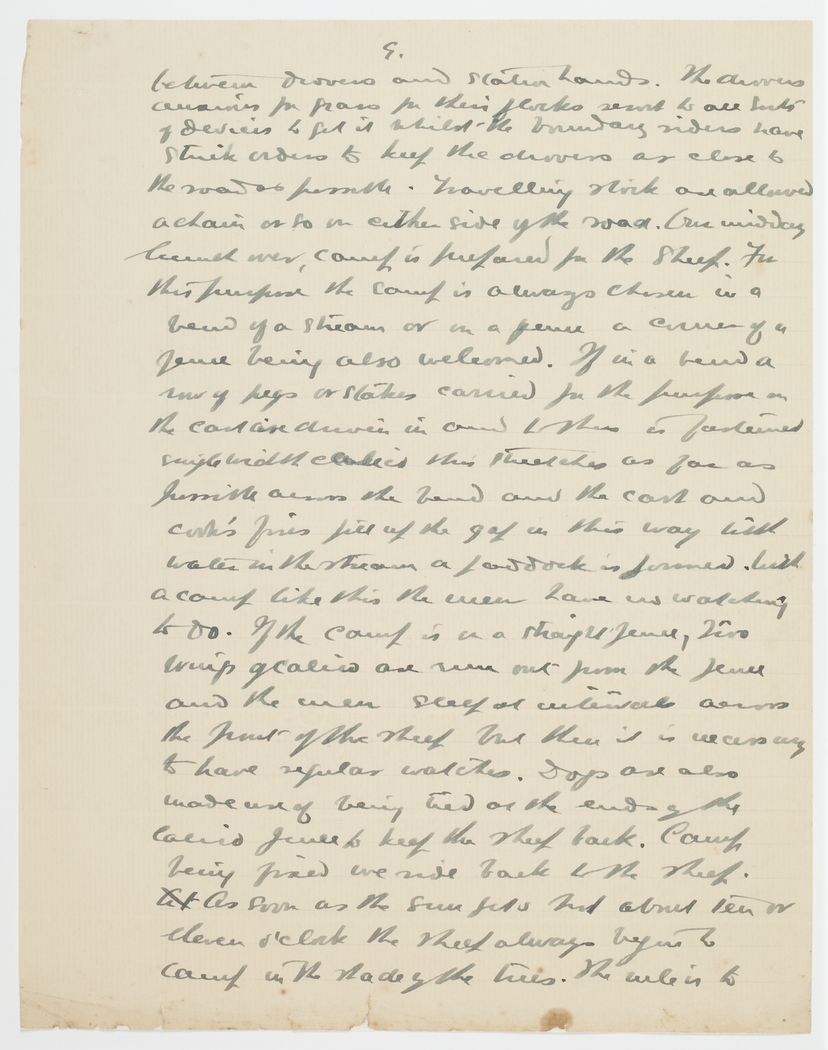 9.
between drovers and station hands. The drovers
anxious for grass for their flocks resort to all sorts
of devices to get it whilst the boundary riders have
strict orders to keep the drovers as close to
the road as possible. Travelling stock are allowed
a chain or so on either side of the road. Our midday
lunch over, camp is prepared for the sheep. For
this purpose the camp is always chosen in a
bend of a stream or on a fence a corner of a
fence being also welcomed. If in a bend a
row of pegs or stakes carried for the purpose on
the cart are driven in and to them is fastened
single width calico this stretches as far as
possible across the bend and the cart and
cook's fires fill up the gap in this way with
water in the stream a paddock is formed. With
a camp like this the men have no watching
to do. If the camp is on a straight fence, two
wings of calico are run out from the fence
and the men sleep at intervals across
the front of the sheep but then it is necessary
to have regular watches. Dogs are also
made use of being tied at the ends of the
calico fence to keep the sheep back. Camp
being fixed we ride back to the sheep.
As soon as the sun gets hot about ten or
eleven o'clock the sheep always begin to
camp in the shade of the trees. The rule is to